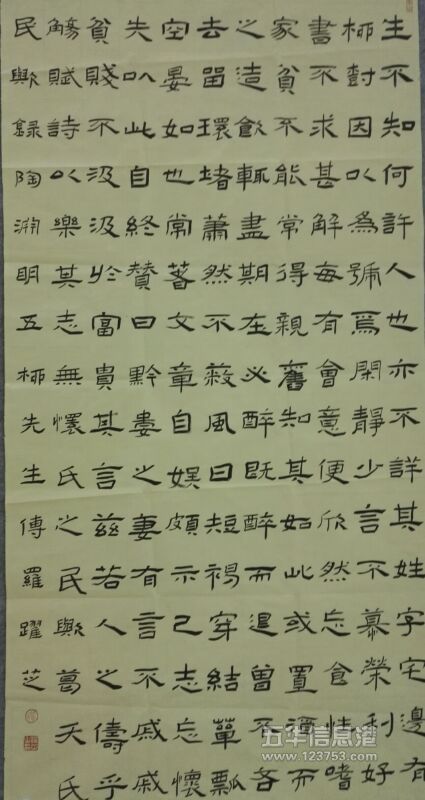 生不知何許人也亦不詳其姓字宅邊有
柳樹因以為號焉閑靜少言不慕榮利好
書不求甚解每有會意便欣然忘食性嗜
家貧不能常得親舊知其如此或置酒而
之造飲輒盡期在必醉既醉而退曾不吝
去留環堵蕭然不蔽風日短褐穿結簞瓢
空晏如也常著文章自娛頗示己志忘懷
失以此自終贊曰黔婁之妻有言不戚戚
貧賤不汲汲於富貴其言茲若人之儔乎
觴賦詩以樂其志無懷氏之民歟葛天氏
民歟錄陶淵明五柳先生傳羅躍芝
五华信息港
www.123753.com